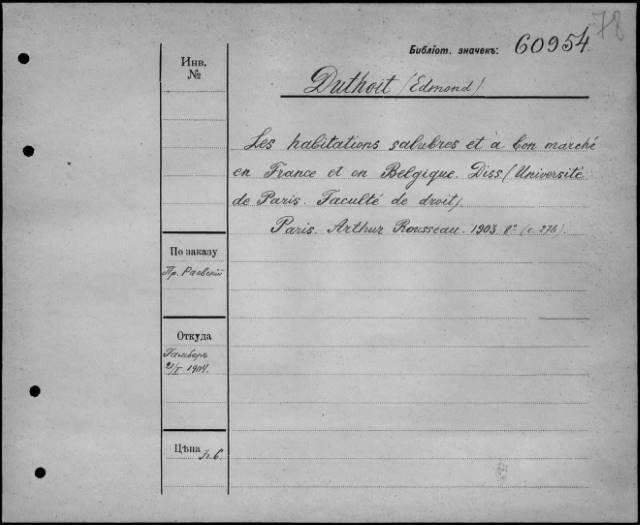 78
Библіот. значекъ: 60954
Инв.
№
Duthoit (Edmond)
Les habitations salubres et à bon marché
en France et en Belgique. Diss (Université
de Paris. Faculté de droit).
Paris. Arthur Rousseau. 1903. 8º (c. 276).
По заказу
Пр. Раевскій
Откуда
2/I 1904.
Цѣна